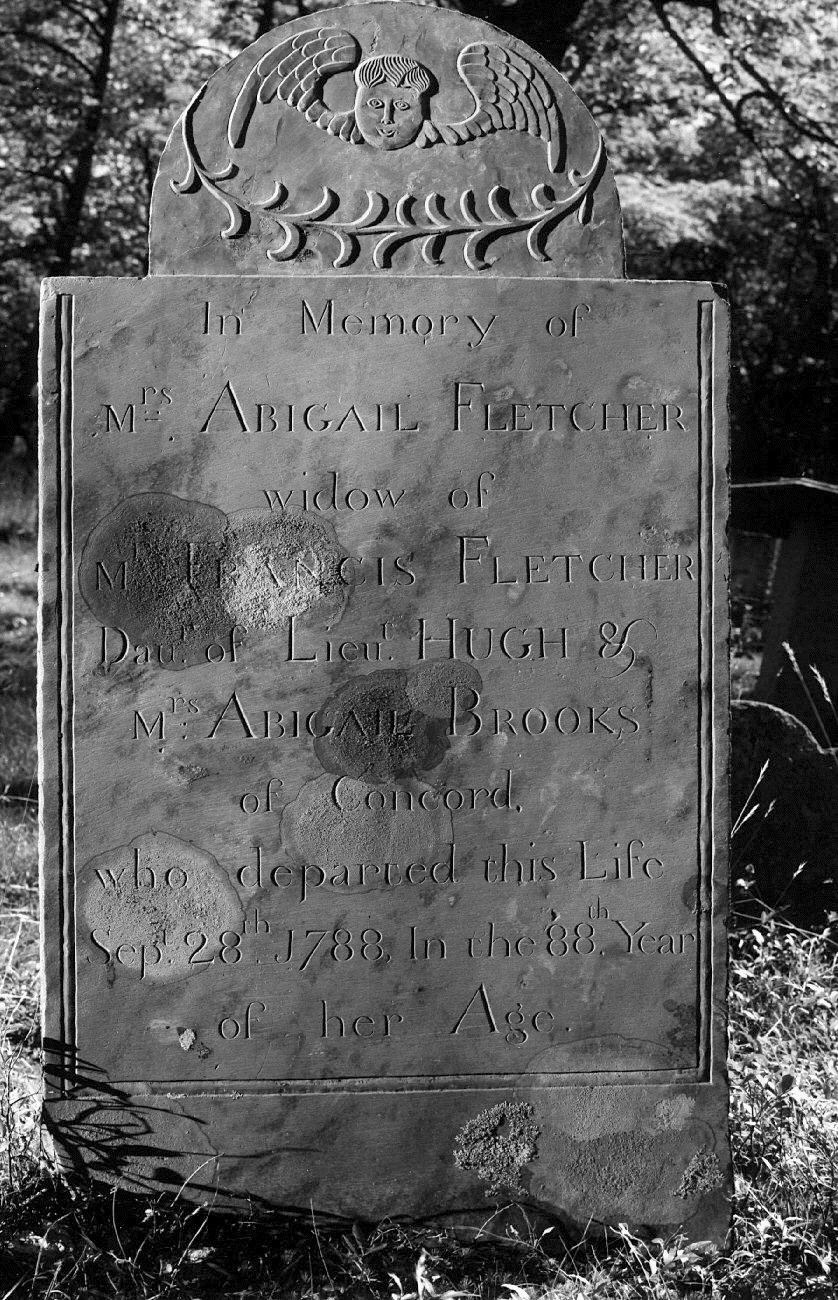 In Memory of
Mrs. ABIGAIL FLETCHER
widow of
Mr. FRANCIS FLETCHER
Daur. of Lieut. HUGH &
Mrs. ABIGAIL BROOKS
of Concord,
who departed this Life
Sept. 28th. 1788, In the 88th. Year
of her Age.